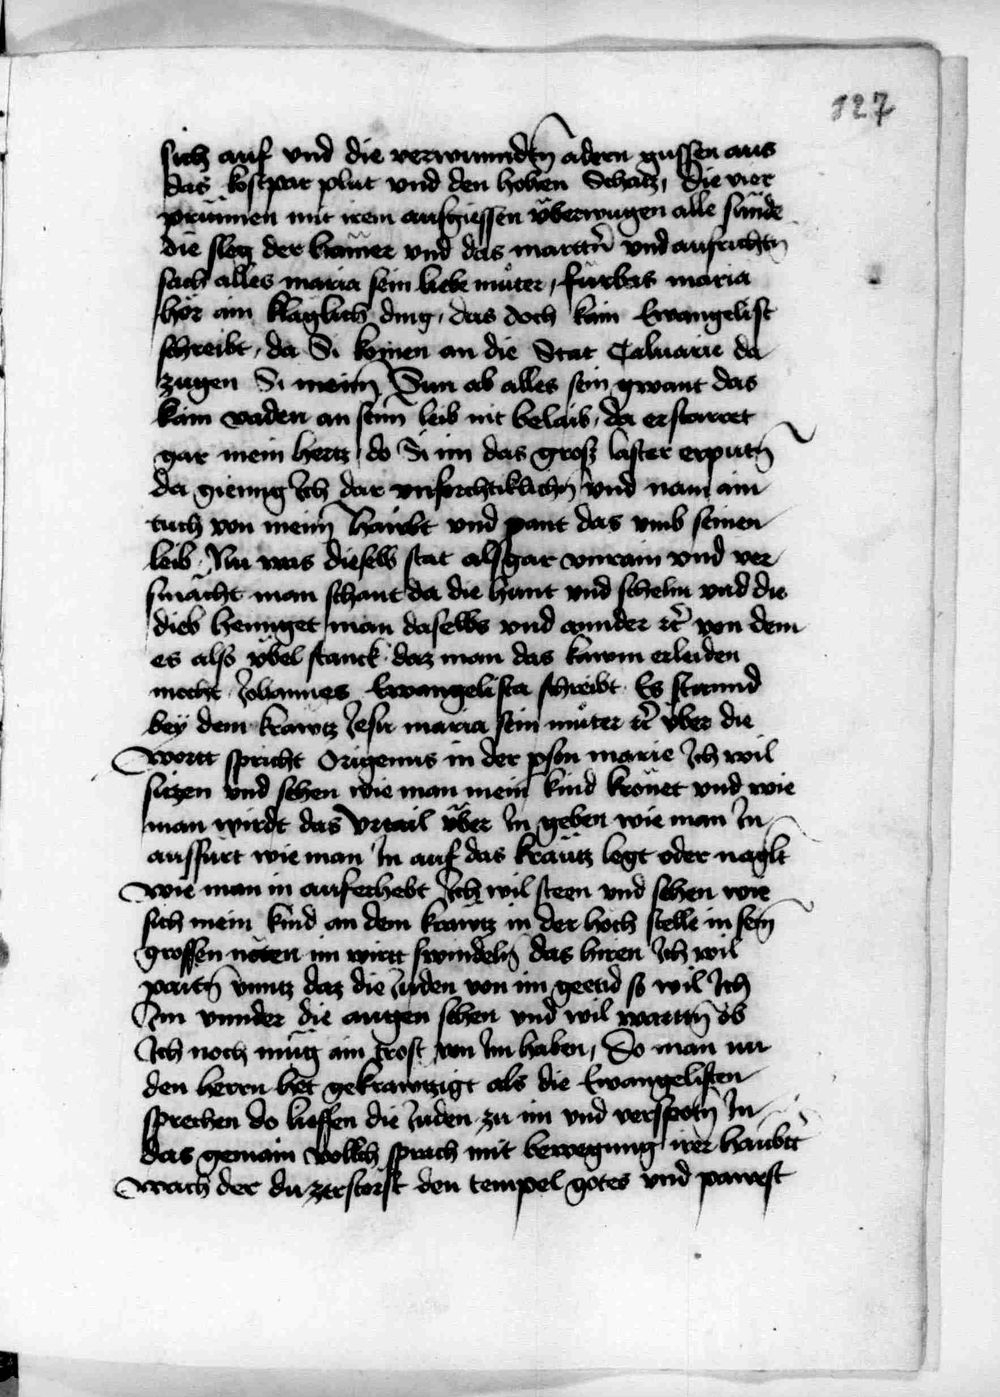 127
sich auf vnd die verwunndtn̄ adern gussen aus
das kostpar plut vnd den hohen Schatz, die vier
prünnen mit irem aufgiessen v̈berwugen alle sünde
die sleg der hämer vnd das marttr̄n vnd aufrichtn̄
sach alles maria sein liebe můter, fürbas maria
hör ain kläglich ding, das doch kain Ewangelist
schreibt, da Si komen an die Stat Caluarie da
zugen Si meinn̄ Sun ab alles sein gwant das
kain vaden an seinn̄ leib nit belaib, da erstarret
gar mein hertz do Si im das gross laster erputn̄
da gienng Ich dar vnforchtiklichn̄ vnd nam ain
tuch von meinn̄ Haẃbt vnd pant das vmb seinen
leib. Nu was dieselb stat als gar vnrain vnd ver
smächt man schant da die hunt vnd schelm vnd die
dieb hennget man daselbs vnd annder rc̄ von dem
es also v̈bel stanck daz man das kawm erleiden
mocht. Johannes Ewangelista schreibt Es stuennd
bey dem krawtz Jesu maria sein můter rc̄ v̈ber die
wortt spricht Origenus in der pson marie Ich wil
sitzen vnd sehen wie man mein kind krönet vnd wie
man wirdt das vrtail v̈ber In geben wie man In
ausfürt wie man In auf das kräutz legt oder naglt
wie man in auferhebt Ich wil steen vnd sehen wie
sich mein kind an dem krawtz in der hoch stelle in sein̄
grossen nöten im wirtt swindeln̄ das hiren Ich wil
paitn̄ vnntz daz die Juden von im geend so wil Ich
Im vnnder die augen sehen vnd wil warttn̄ ob
Ich noch müg ain trost von Im haben, So man nu
den herrn het gekrawtzigt als die Ewangelisten
sprechen do lieffen die Juden zu im vnd verspotn̄ In
das gemain vollch sprach mit bewegung irer haubtt
wach der du zerstorst den tempel gotes vnd pawest